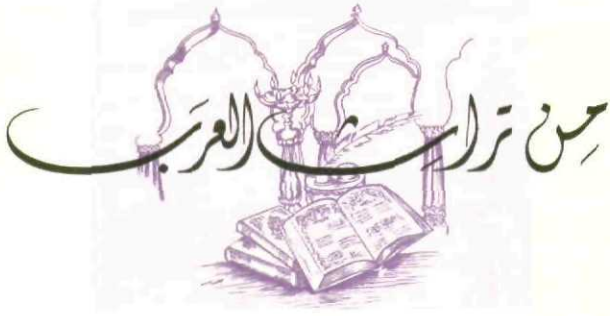 من تراث العرَب